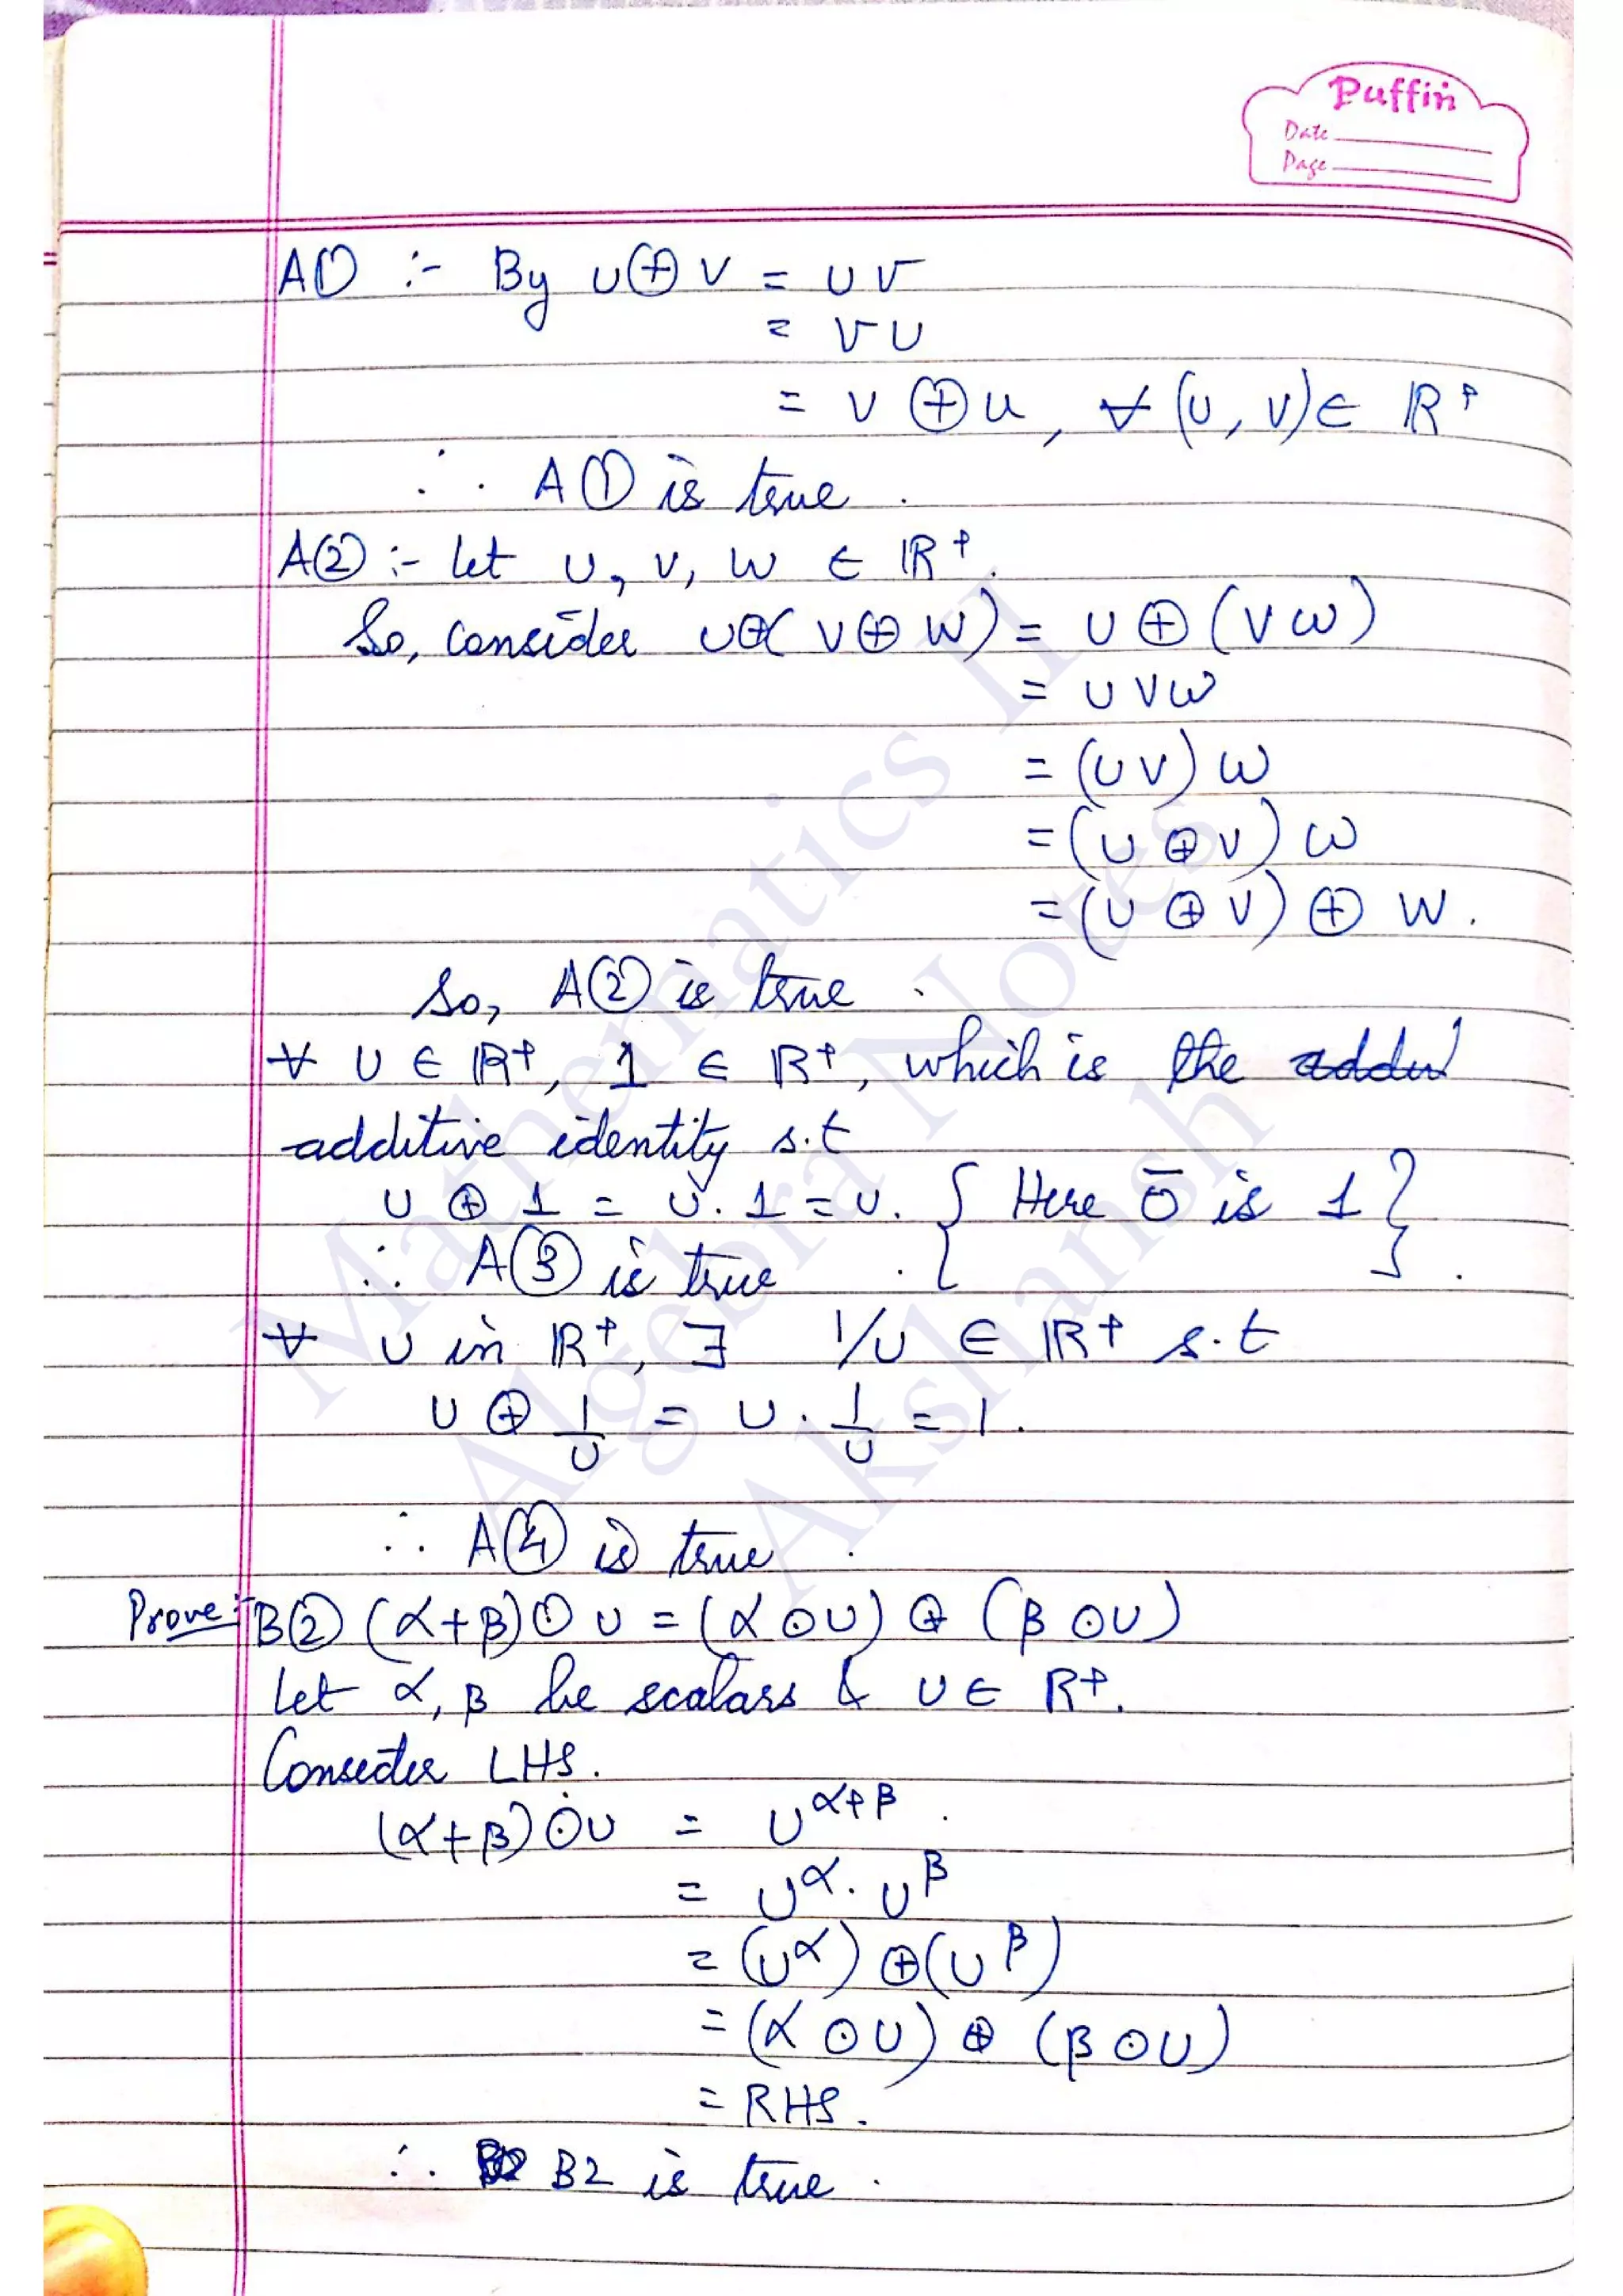 Puffin
Date
Page
A① :- By u ⊕ v = uv
= vu
= v ⊕ u, ∀ (u, v) ∈ ℝ⁺
∴ A① is true.
A② :- let u, v, w ∈ ℝ⁺.
So, consider u ⊕ (v ⊕ w) = u ⊕ (vw)
= uvw
= (uv) w
= (u ⊕ v) w
= (u ⊕ v) ⊕ w.
So, A② is true.
∀ u ∈ ℝ⁺, 1 ∈ ℝ⁺, which is the
additive identity s.t
u ⊕ 1 = u. 1 = u. { Here ō is 1 }.
∴ A③ is true.
∀ u in ℝ⁺, ∃ 1/u ∈ ℝ⁺ s.t
u ⊕ 1/u = u . 1/u = 1.
∴ A④ is true.
Prove:- B② (α+β) ⊙ u = (α ⊙ u) ⊕ (β ⊙ u)
let α, β be scalars & u ∈ R⁺.
Consider LHS.
(α+β) ⊙ u = u^(α+β).
= u^α . u^β
= (u^α) ⊕ (u^β)
= (α ⊙ u) ⊕ (β ⊙ u)
= RHS.
∴ B2 is true.
Mathematics II
Algebra Notes
Akshansh